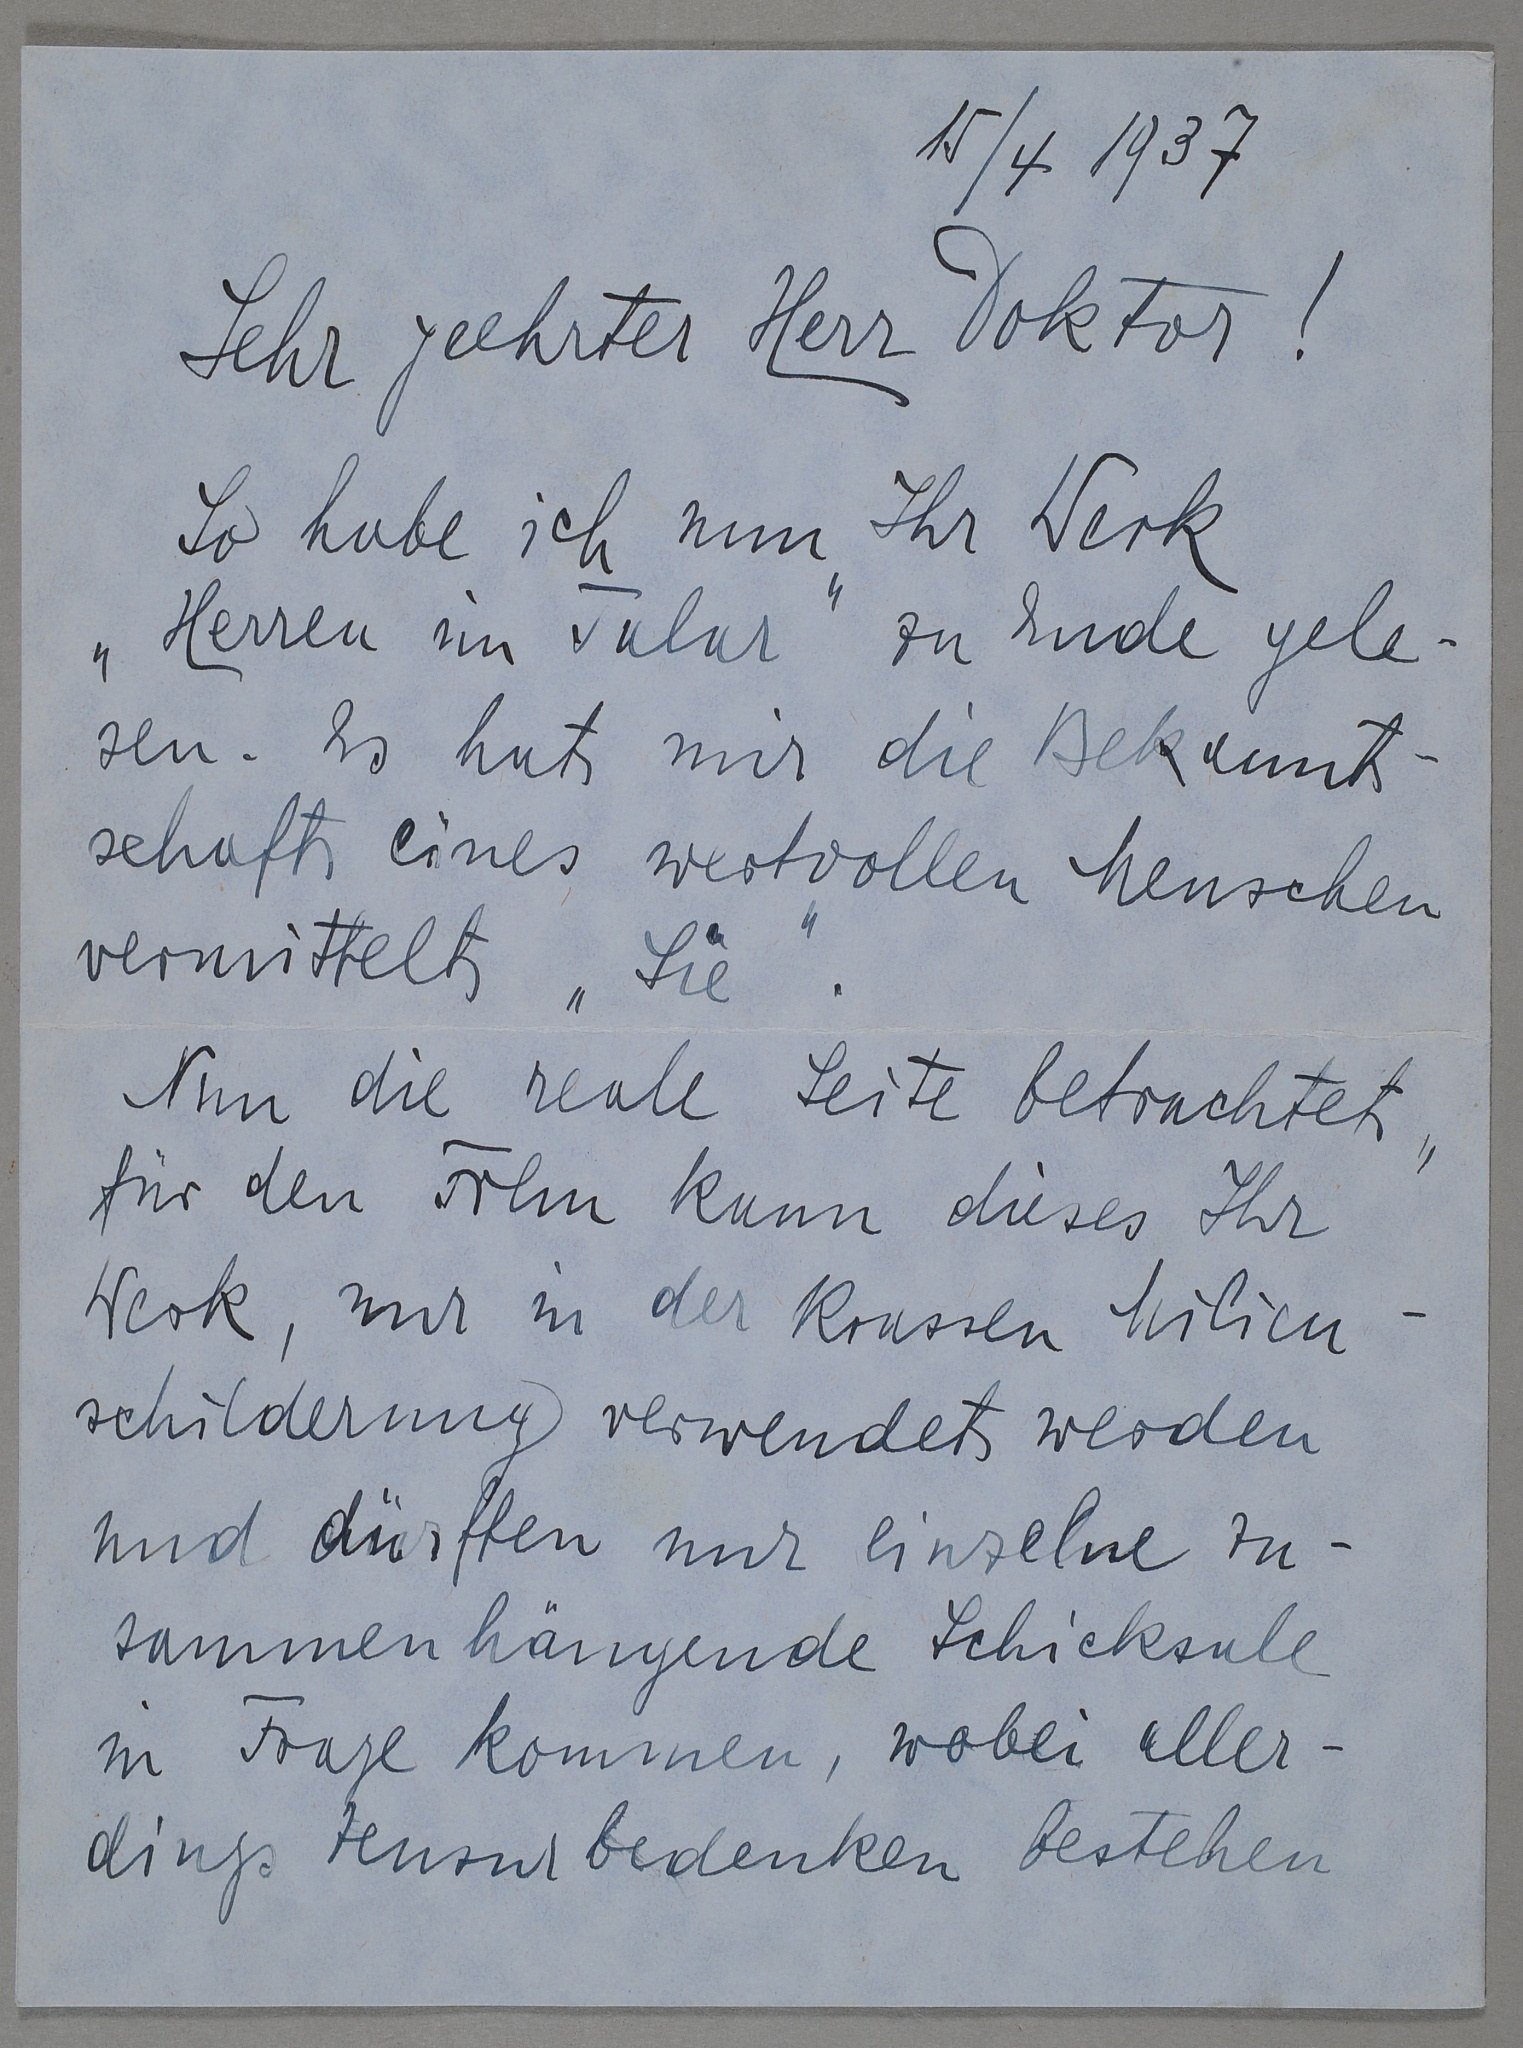 15/4 1937
Sehr geehrter Herr Doktor!
So habe ich nun Ihr Werk
„Herren im Talar" zu Ende gele-
sen. Es hat mir die Bekannt-
schaft eines wertvollen Menschen
vermittelt „Sie".
Nun die reale Seite betrachtet,
für den Film kann dieses Ihr
Werk, nur in der krassen Milieu-
schilderung verwendet werden
und dürften nur einzelne zu-
sammenhängende Schicksale
in Frage kommen, wobei aller-
dings Zensurbedenken bestehen